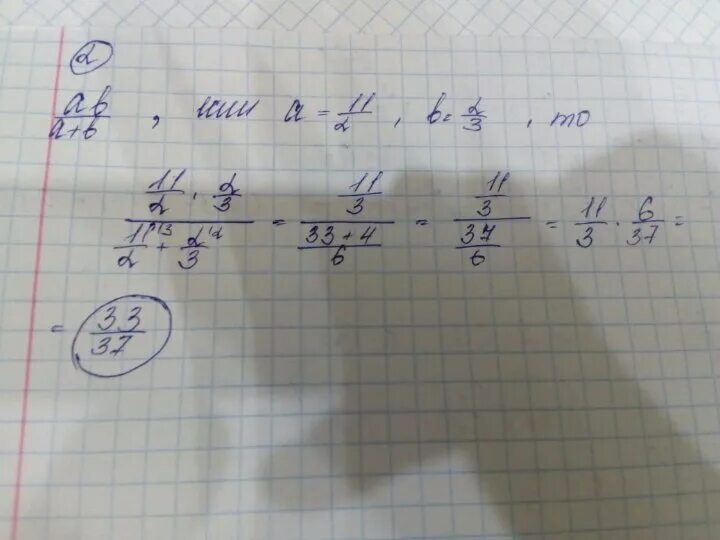 2
ab/(a+b), или a = 11/2, b = 2/3, то
(11/2 · 2/3)/(11·3/2 + 2·2/3) = (11/3)/((33+4)/6) = (11/3)/(37/6) = 11/3 · 6/37 =
= 33/37